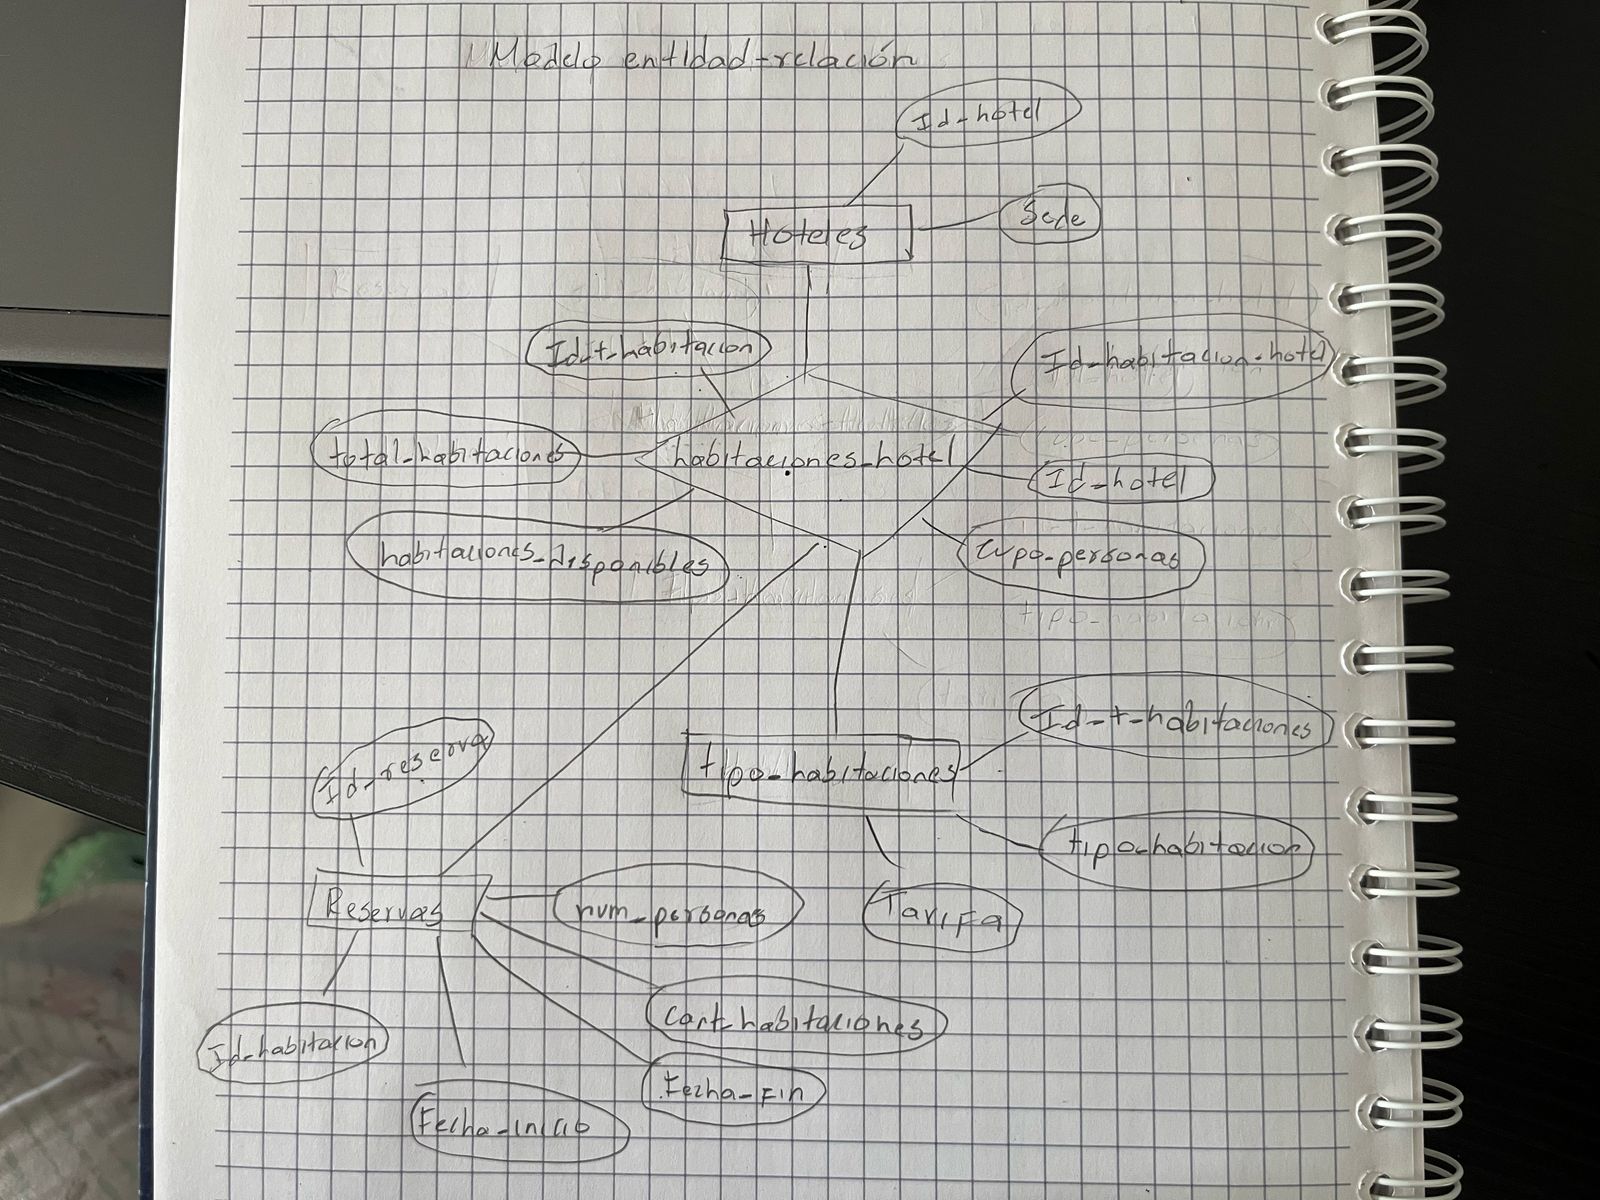 Modelo entidad-relación
Id-hotel
Hoteles
Sede
Id-t-habitacion
Id-habitacion-hotel
total-habitaciones
habitaciones-hotel
Id-hotel
habitaciones-disponibles
cupo-personas
Id-reserva
tipo-habitaciones
Id-t-habitaciones
tipo-habitacion
Reservas
num-personas
Tarifa
cant-habitaciones
Id-habitacion
Fecha-Fin
Fecha-inicio